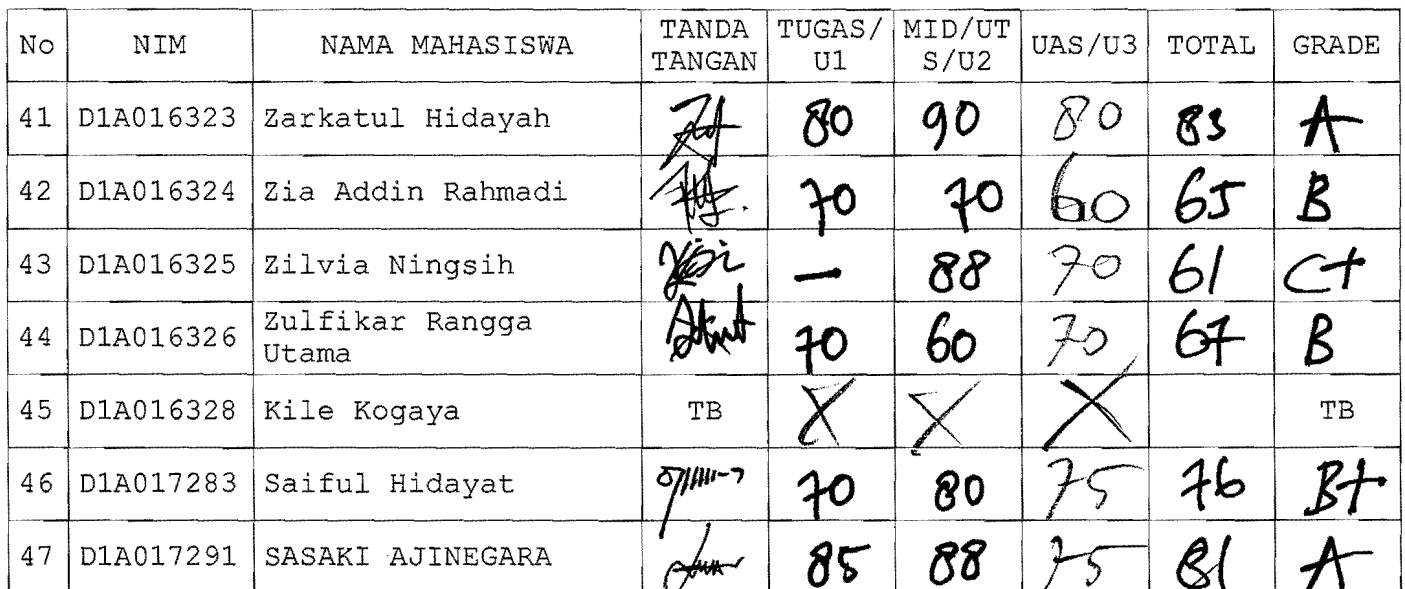 No NIM NAMA MAHASISWA TANDA TANGAN TUGAS/U1 MID/UTS/U2 UAS/U3 TOTAL GRADE
41 D1A016323 Zarkatul Hidayah 80 90 80 83 A
42 D1A016324 Zia Addin Rahmadi 70 70 60 65 B
43 D1A016325 Zilvia Ningsih — 88 70 61 C+
44 D1A016326 Zulfikar Rangga Utama 70 60 70 67 B
45 D1A016328 Kile Kogaya TB X X X TB
46 D1A017283 Saiful Hidayat 70 80 75 76 B+
47 D1A017291 SASAKI AJINEGARA 85 88 75 81 A